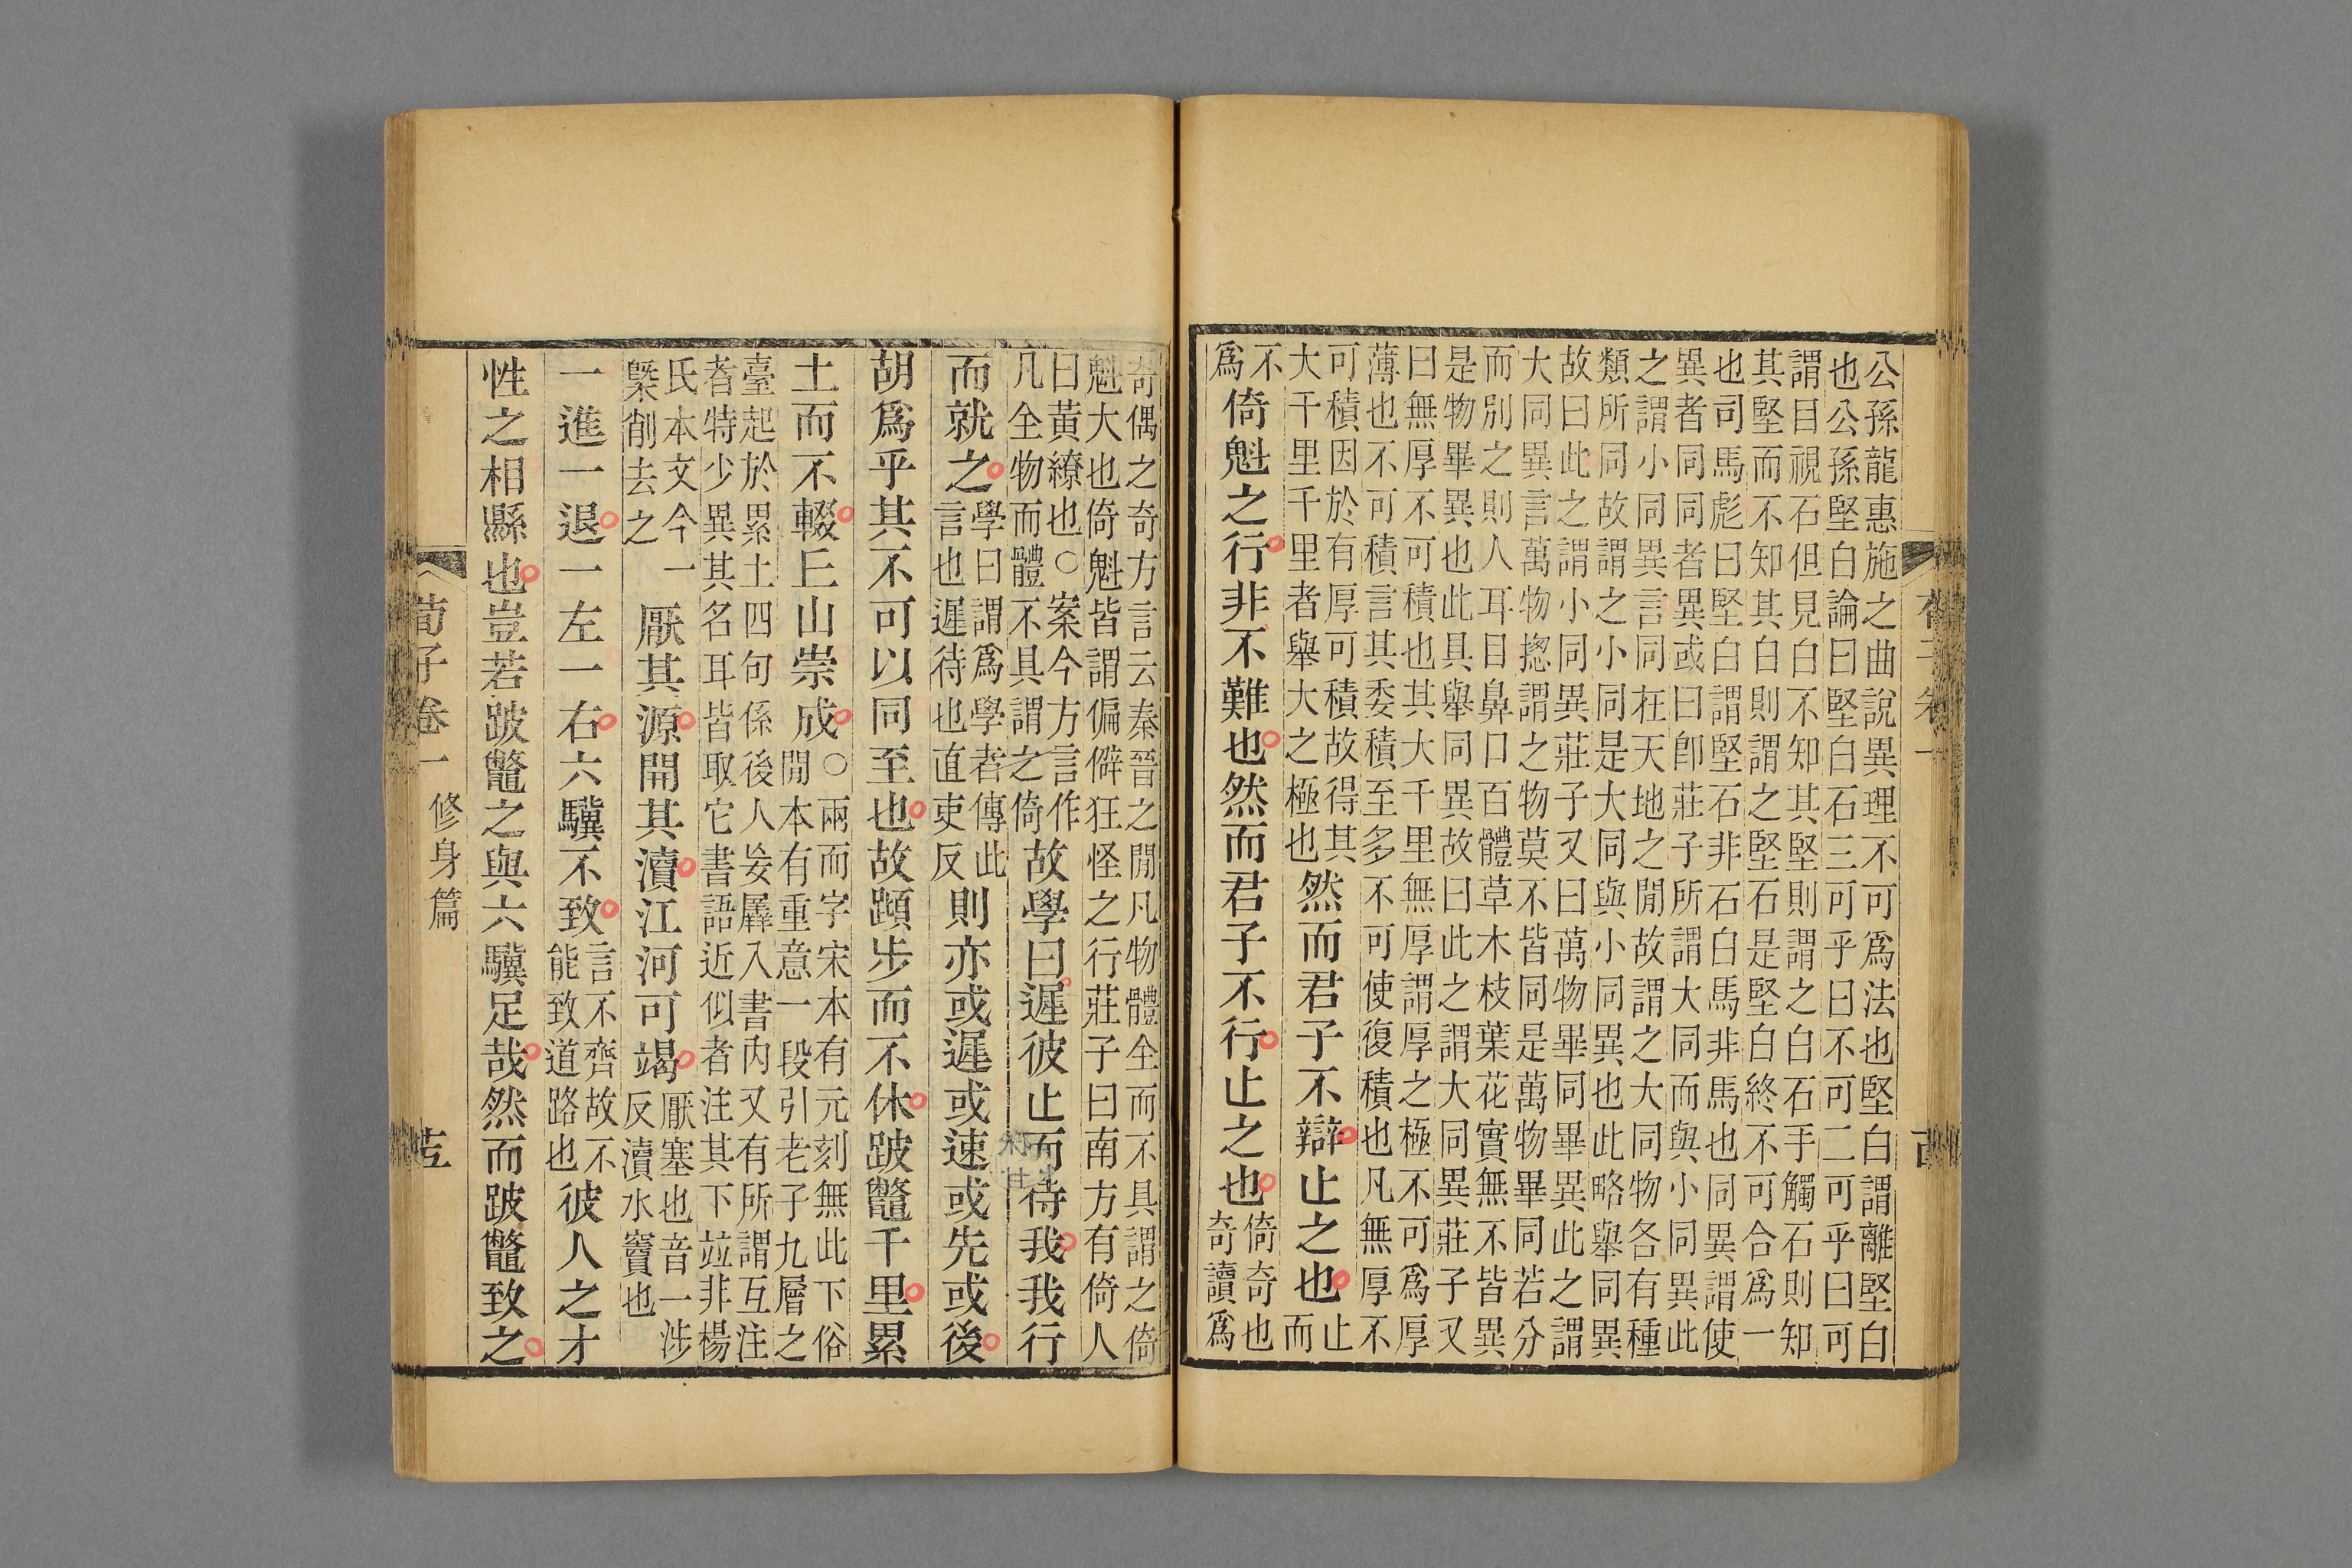 公孫龍惠施之曲說異理不可爲法也堅白謂離堅白
也公孫堅白論曰堅白石三可乎曰不可二可乎曰可
謂目視石但見白不知其堅則謂之白石手觸石則知
其堅而不知其白則謂之堅石是堅白終不可合爲一
也司馬彪曰堅白謂堅石非石白馬非馬也同異謂使
異者同同者異或曰卽莊子所謂大同而與小同異此
之謂小同異言同在天地之閒故謂之大同物各有種
類所同故謂之小同是大同與小同異也此略舉同異
故曰此之謂小同異莊子又曰萬物畢同畢異此之謂
大同異言萬物揔謂之物莫不皆同是萬物畢同若分
而別之則人耳目鼻口百體草木枝葉花實無不皆異
是物畢異也此具舉同異故曰此之謂大同異莊子又
曰無厚不可積也其大千里無厚謂厚之極不可爲厚
薄也不可積言其委積至多不可使復積也凡無厚不
可積因於有厚可積故得其
大千里千里者舉大之極也
然而君子不辯止之也
止
而
不
爲
倚魁之行非不難也然而君子不行止之也
倚奇也
奇讀爲
奇偶之奇方言云秦晉之閒凡物體全而不具謂之倚
魁大也倚魁皆謂偏僻狂怪之行莊子曰南方有倚人
曰黃繚也○案今方言作
凡全物而體不具謂之倚
故學曰遲彼止而待我我行
而就之
學曰謂爲學者傳此
言也遲待也直吏反
則亦或遲或速或先或後
胡爲乎其不可以同至也故蹞步而不休跛鼈千里累
土而不輟丘山崇成
○兩而字宋本有元刻無此下俗
閒本有重意一段引老子九層之
臺起於累土四句係後人妄羼入書內又有所謂互注
者特少異其名耳皆取它書語近似者注其下竝非楊
氏本文今一
槩削去之
厭其源開其瀆江河可竭
厭塞也音一涉
反瀆水竇也
一進一退一左一右六驥不致
言不齊故不
能致道路也
彼人之才
性之相縣也豈若跛鼈之與六驥足哉然而跛鼈致之
荀子卷一
修身篇